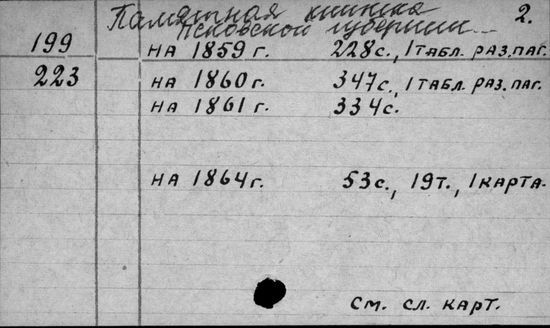 Памятная книжка 2.
Псковской губернии...
199 на 1859 г. 228 с., 1 табл. раз. паг.
223 на 1860 г. 347 с., 1 табл. раз. паг.
на 1861 г. 334 с.
на 1864 г. 53 с., 19 т., 1 карта.
См. сл. карт.